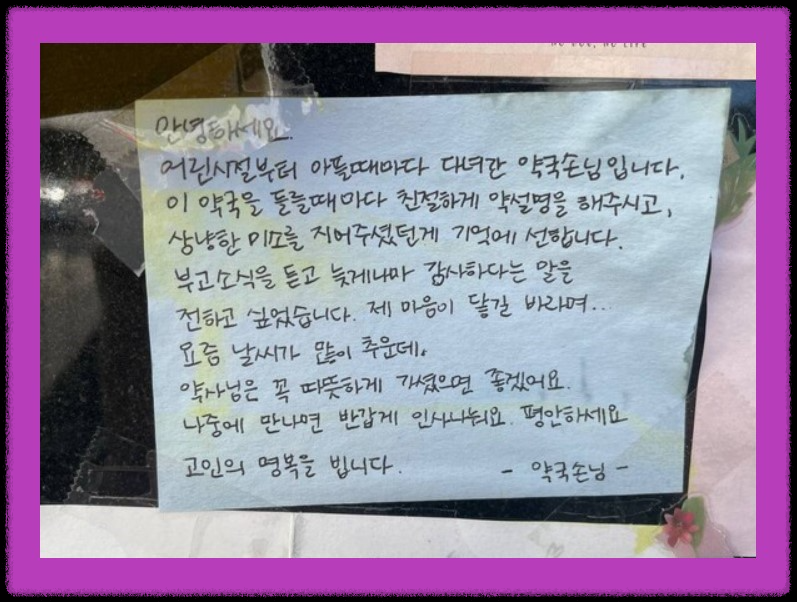 안녕하세요.
어린시절부터 아플때마다 다녀간 약국손님입니다.
이 약국을 들를때마다 친절하게 약설명을 해주시고,
상냥한 미소를 지어주셨던게 기억에 선합니다.
부고소식을 듣고 늦게나마 감사하다는 말을
전하고 싶었습니다. 제 마음이 닿길 바라며...
요즘 날씨가 많이 추운데.
약사님은 꼭 따뜻하게 가셨으면 좋겠어요.
나중에 만나면 반갑게 인사나눠요. 평안하세요
고인의 명복을 빕니다. - 약국손님 -